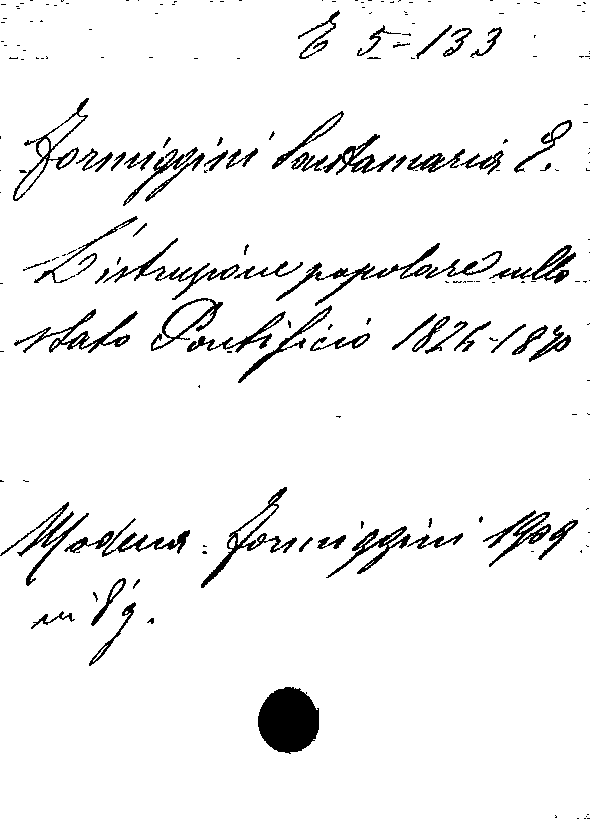 E 5-133
Formiggini Santamaria E.
L'istruzione popolare nello
stato Pontificio 1824-1870
Modena. Formiggini 1909
in 8º g.